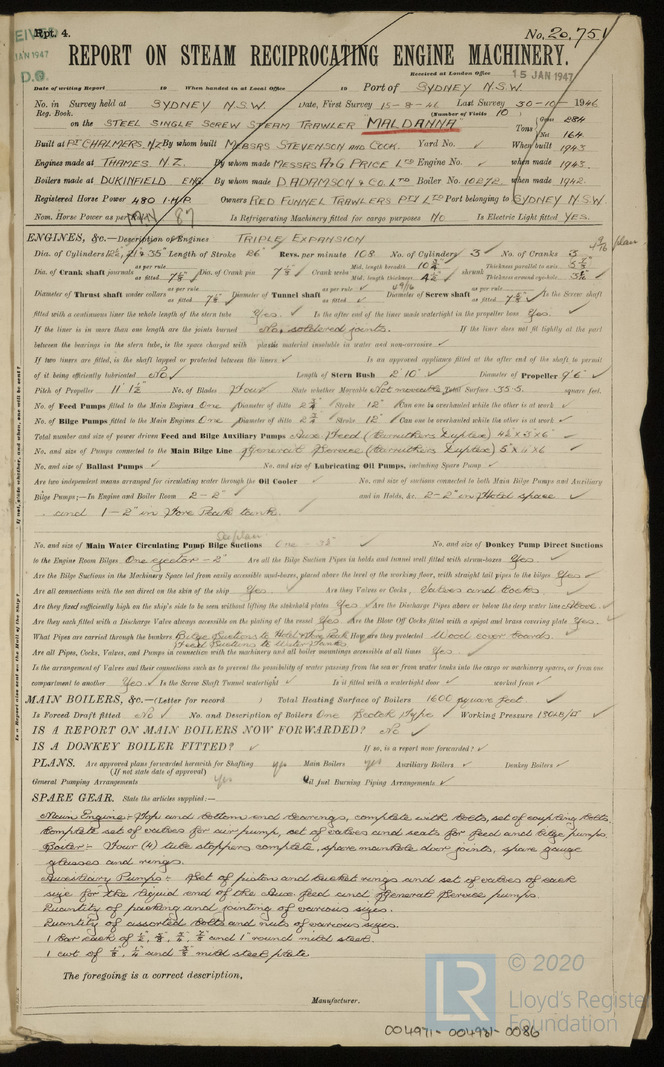 Rpt. 4.
JAN 1947
D.O.
No. 20,751
REPORT ON STEAM RECIPROCATING ENGINE MACHINERY.
Received at London Office
15 JAN 1947
Date of writing Report 19 When handed in at Local Office 19 Port of SYDNEY N.S.W.
No. in Survey held at SYDNEY N.S.W. Date, First Survey 15-8-46 Last Survey 30-10- 1946
Reg. Book. (Number of Visits 10)
on the STEEL SINGLE SCREW STEAM TRAWLER MALDANNA Tons Gross 284 Net 164
Built at Pt CHALMERS. N.Z By whom built MESSRS STEVENSON AND COOK. Yard No. ✓ When built 1943
Engines made at THAMES. N.Z. By whom made MESSRS A&G PRICE LTD Engine No. ✓ when made 1943.
Boilers made at DUKINFIELD ENG. By whom made D ADAMSON & Co. LTD Boiler No. 10272 when made 1942.
Registered Horse Power 480 I.H.P. Owners RED FUNNEL TRAWLERS PTY LTD Port belonging to SYDNEY N.S.W.
Nom. Horse Power as per 87 Is Refrigerating Machinery fitted for cargo purposes NO Is Electric Light fitted YES.
ENGINES, &c.—Description of Engines TRIPLE EXPANSION
Dia. of Cylinders 12½, 21 & 35" Length of Stroke 26" Revs. per minute 108 No. of Cylinders 3 No. of Cranks 3
Dia. of Crank shaft journals as per rule as fitted 7⅞" Dia. of Crank pin 7⅞" Crank webs Mid. length breadth 10¾" Mid. length thickness 4½" shrunk Thickness parallel to axis Thickness around eye-hole
Diameter of Thrust shaft under collars as per rule as fitted Diameter of Tunnel shaft as per rule as fitted Diameter of Screw shaft as per rule as fitted Is the Screw shaft
fitted with a continuous liner the whole length of the stern tube Yes. Is the after end of the liner made watertight in the propeller boss Yes.
If the liner is in more than one length are the joints burned No, soldered joints. If the liner does not fit tightly at the part
between the bearings in the stern tube, is the space charged with plastic material insoluble in water and non-corrosive ✓
If two liners are fitted, is the shaft lapped or protected between the liners ✓ Is an approved appliance fitted at the after end of the shaft to permit
of it being efficiently lubricated No ✓ Length of Stern Bush 2' 10" Diameter of Propeller 9' 6"
Pitch of Propeller 11' 1½" No. of Blades Four State whether Moveable Not moveable Total Surface 35.5. square feet.
No. of Feed Pumps fitted to the Main Engines One Diameter of ditto 2¾" Stroke 12" Can one be overhauled while the other is at work ✓
No. of Bilge Pumps fitted to the Main Engines One Diameter of ditto 2¾" Stroke 12" Can one be overhauled while the other is at work ✓
Total number and size of power driven Feed and Bilge Auxiliary Pumps Aux. Feed (Carruthers Duplex) 4½" x 3" x 6"
No. and size of Pumps connected to the Main Bilge Line General Service (Carruthers Duplex) 5" x 4" x 6"
No. and size of Ballast Pumps ✓ No. and size of Lubricating Oil Pumps, including Spare Pump ✓
Are two independent means arranged for circulating water through the Oil Cooler ✓ No. and size of suctions connected to both Main Bilge Pumps and Auxiliary
Bilge Pumps;—In Engine and Boiler Room 2 - 2" and in Holds, &c. 2 - 2" in Hold space
and 1 - 2" in Fore Peak tank.
See plan
No. and size of Main Water Circulating Pump Bilge Suctions One - No. and size of Donkey Pump Direct Suctions
to the Engine Room Bilges One ejector - 2" Are all the Bilge Suction Pipes in holds and tunnel well fitted with strum-boxes Yes.
Are the Bilge Suctions in the Machinery Space led from easily accessible mud-boxes, placed above the level of the working floor, with straight tail pipes to the bilges Yes
Are all connections with the sea direct on the skin of the ship Yes. Are they Valves or Cocks, Valves and Cocks.
Are they fixed sufficiently high on the ship's side to be seen without lifting the stokehold plates Yes Are the Discharge Pipes above or below the deep water line Above.
Are they each fitted with a Discharge Valve always accessible on the plating of the vessel Yes Are the Blow Off Cocks fitted with a spigot and brass covering plate Yes.
What Pipes are carried through the bunkers Bilge Suctions to Hold & Fore Peak How are they protected Wood cover boards.
Feed Suctions to Water Tanks
Are all Pipes, Cocks, Valves, and Pumps in connection with the machinery and all boiler mountings accessible at all times Yes.
Is the arrangement of Valves and their connections such as to prevent the possibility of water passing from the sea or from water tanks into the cargo or machinery spaces, or from one
compartment to another Yes Is the Screw Shaft Tunnel watertight ✓ Is it fitted with a watertight door ✓ worked from ✓
MAIN BOILERS, &c.—(Letter for record ) Total Heating Surface of Boilers 1600 square feet.
Is Forced Draft fitted No ✓ No. and Description of Boilers One Scotch Type ✓ Working Pressure
IS A REPORT ON MAIN BOILERS NOW FORWARDED? No ✓
IS A DONKEY BOILER FITTED? ✓ If so, is a report now forwarded? ✓
PLANS. Are approved plans forwarded herewith for Shafting yes Main Boilers yes Auxiliary Boilers ✓ Donkey Boilers ✓
(If not state date of approval)
General Pumping Arrangements yes Oil fuel Burning Piping Arrangements ✓
SPARE GEAR. State the articles supplied:—
Main Engine:- Top and bottom end bearings, complete with bolts, set of coupling bolts.
Complete set of valves for air pump, set of valves and seats for feed and bilge pumps.
Boiler:- Four (4) tube stoppers complete, spare manhole door joints, spare gauge
glasses and rings.
Auxiliary Pumps:- Set of piston and bucket rings and set of valves of each
size for the liquid end of the Aux. feed and General Service pumps.
Quantity of packing and jointing of various sizes.
Quantity of assorted bolts and nuts of various sizes.
1 bar each of ½", ⅝", ¾", ⅞" and 1" round mild steel.
1 cwt of ⅛", ¼" and ⅜" mild steel plate.
The foregoing is a correct description,
Manufacturer.
If not, state whether, and when, one will be sent?
Is a Report also sent on the Hull of the Ship?
© 2020
LR
Lloyd's Register
Foundation
004971-004981-0086